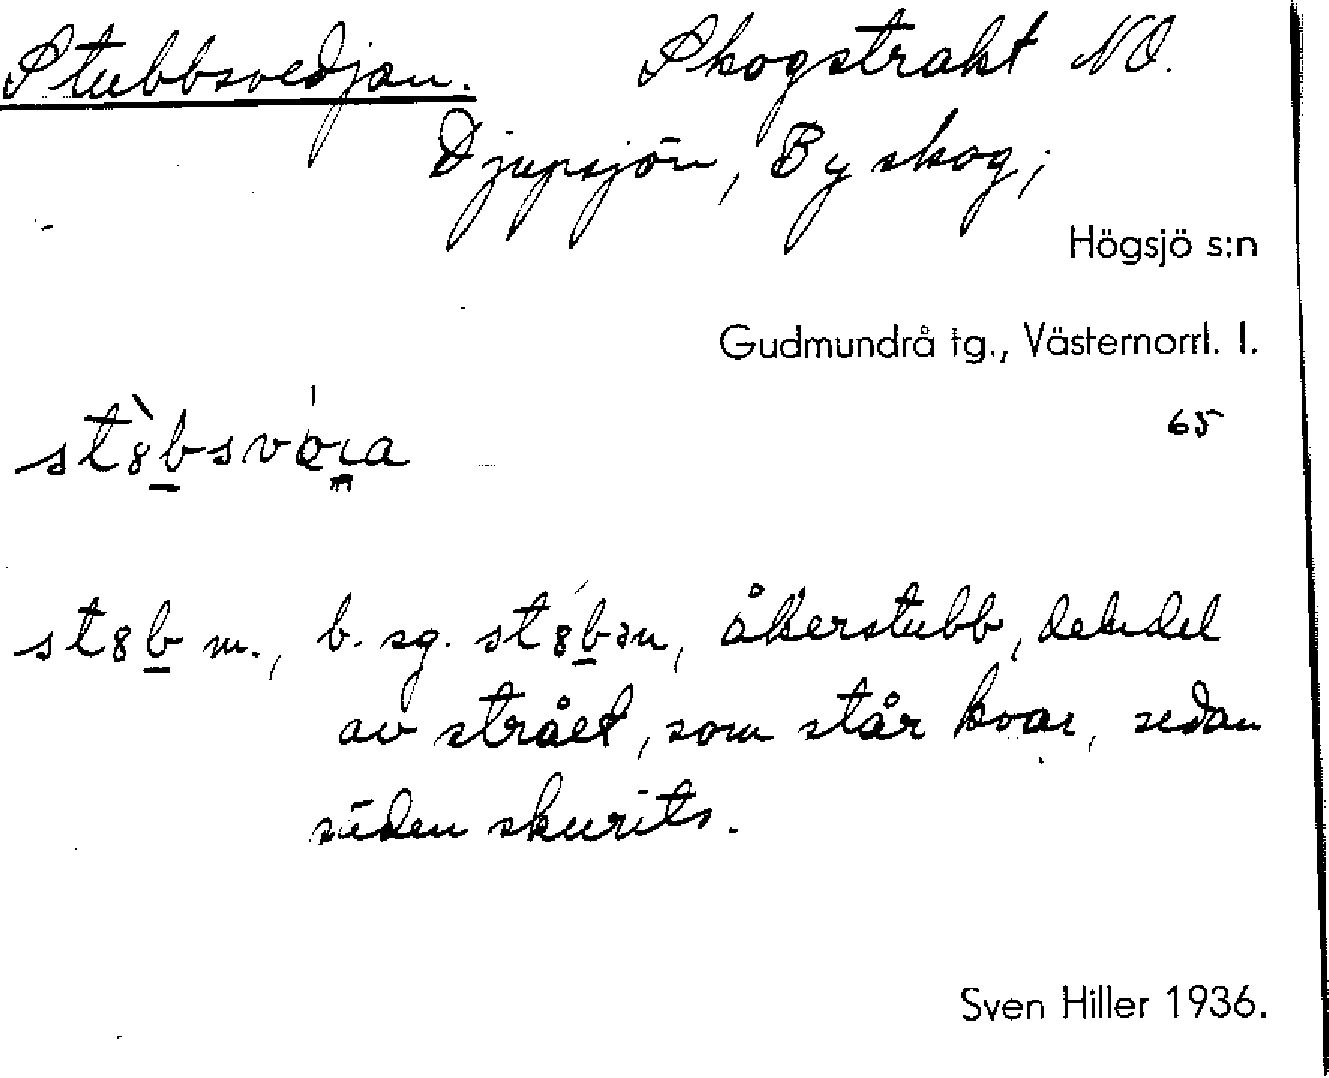 Stubbsvedjan. Skogstrakt NO.
Djupsjön, By skog;
Högsjö s:n
Gudmundrå tg., Västernorrl. l.
65
st8b m., b. sg. st8bən, åkerstubb, den del
av strået, som står kvar, sedan
säden skurits.
Sven Hiller 1936.